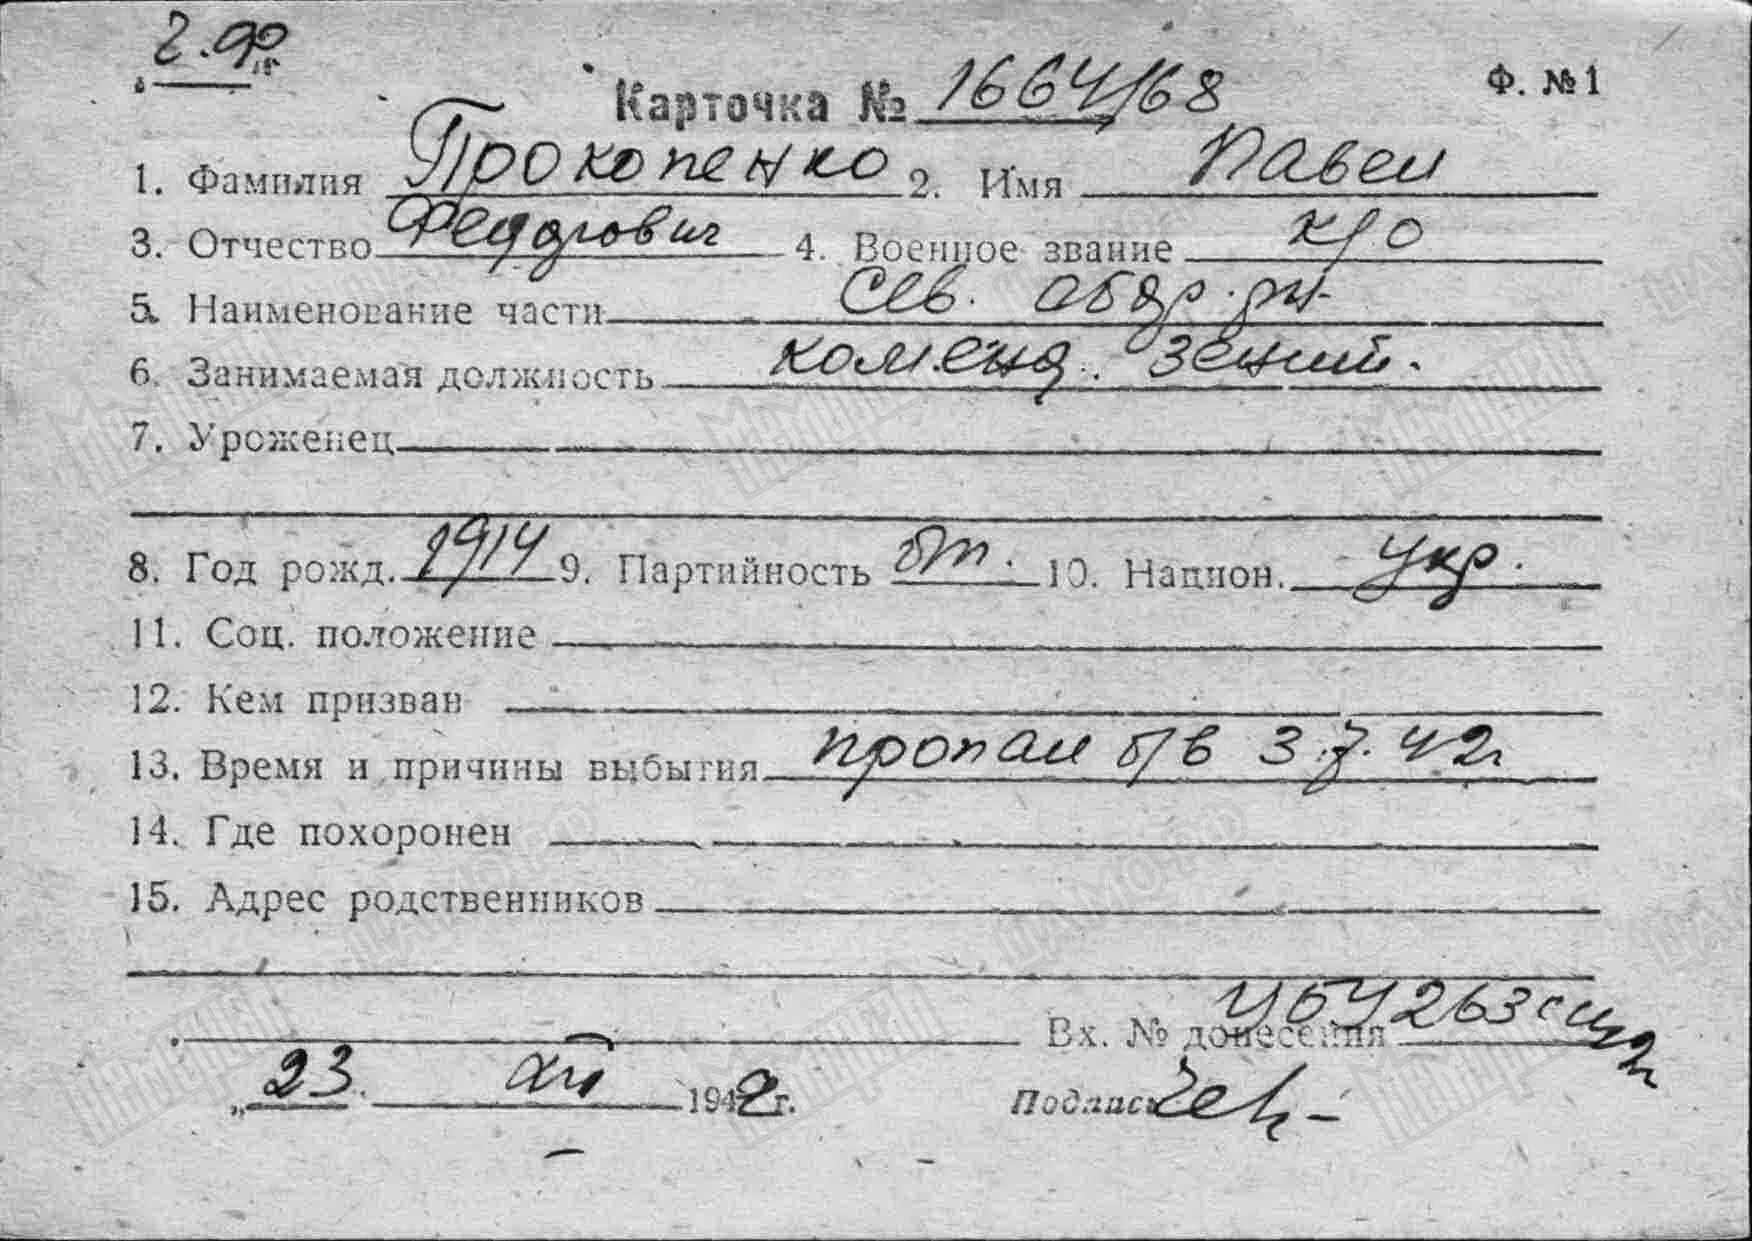 г. ф
Карточка № 1664/68 Ф. № 1
1. Фамилия Прокопенко 2. Имя Павел
3. Отчество Федорович 4. Военное звание к/о
5. Наименование части Сев. обор. р-н
6. Занимаемая должность коменд. зенит.
7. Уроженец
8. Год рожд. 1914 9. Партийность бп. 10. Национ. Укр.
11. Соц. положение
12. Кем призван
13. Время и причины выбытия пропал б/в 3.7.42г
14. Где похоронен
15. Адрес родственников
Вх. № донесения
„ 23. XII 1942 г. Подпись
Мемориал
ЦАМО.РФ